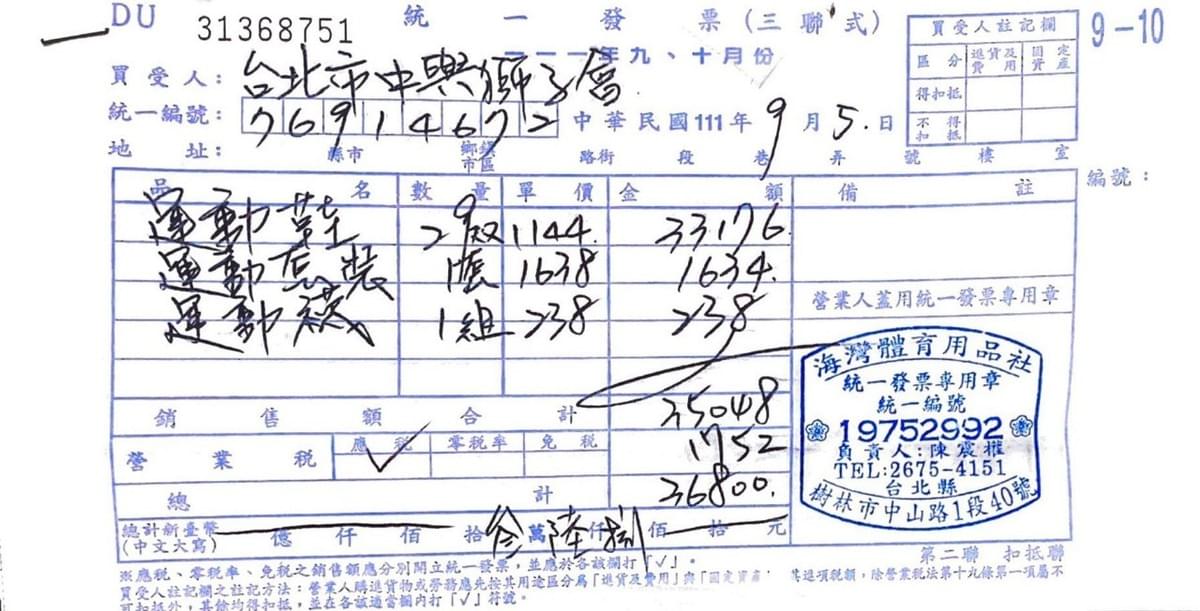 DU 31368751 統一發票(三聯式) 9-10
一一一年九、十月份
買受人註記欄
區分 進貨及費用 固定資產
得扣抵
不得扣抵
買受人: 台北市中興獅子會
統一編號: 76914672 中華民國111年9月5日
地址: 縣市 鄉鎮市區 路街 段 巷 弄 號 樓 室
編號:
品名 數量 單價 金額 備註
運動鞋 29双 1144 33176
運動 套 1638 1634
運動襪 1組 238 238
營業人蓋用統一發票專用章
銷售額合計 35048
營業稅 應稅 ✓ 零稅率 免稅 1752
總計 36800
總計新臺幣(中文大寫) 億仟佰拾參萬陸仟捌佰拾元
海灣體育用品社
統一發票專用章
統一編號
19752992
負責人:陳震權
TEL:2675-4151
台北縣
樹林市中山路1段40號
第二聯 扣抵聯
※應稅、零稅率、免稅之銷售額應分別開立統一發票,並應於各該欄打「√」。
買受人註記欄之註記方法:營業人購進貨物或勞務應先按其用途區分為「進貨及費用」與「固定資產 其進項稅額,除營業稅法第十九條第一項屬不
可扣抵外,其餘均得扣抵,並在各該適當欄內打「√」符號。